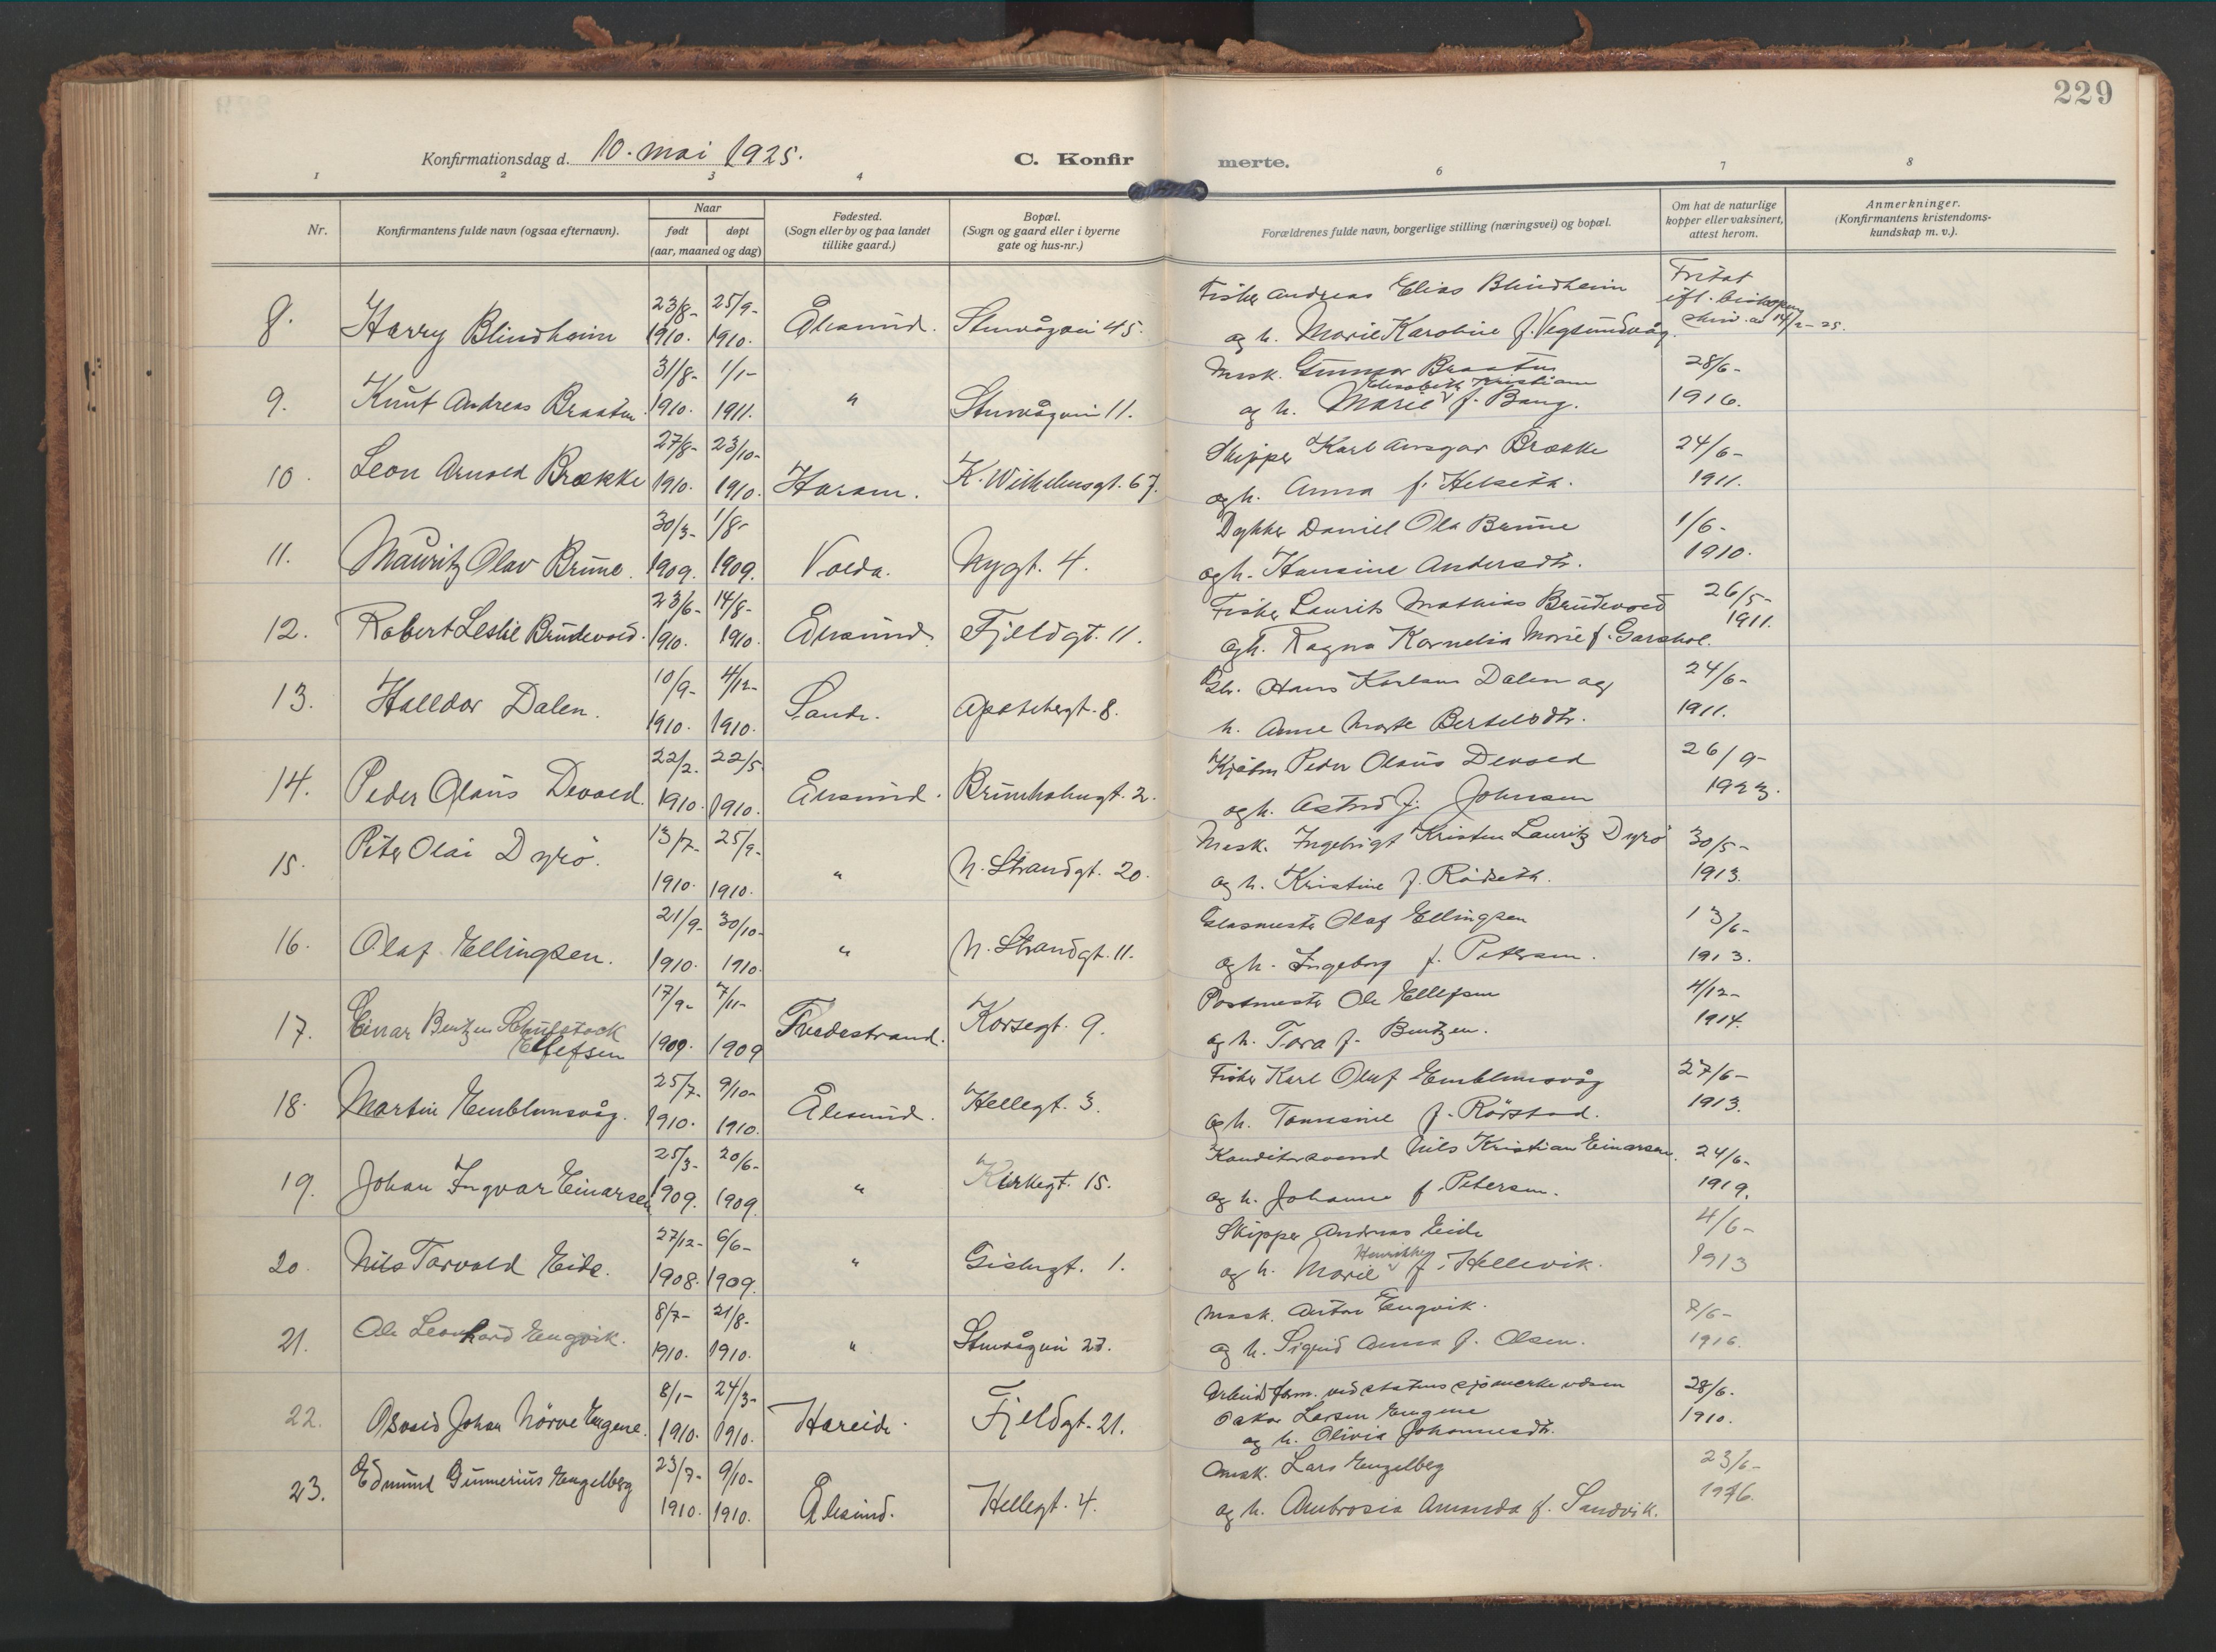 229
Konfirmationsdag d. 10. mai 1925.
C. Konfirmerte.
1 2 3 4 6 7 8
Nr.
Konfirmantens fulde navn (ogsaa efternavn).
Naar
født døpt
(aar, maaned og dag)
Fødested.
(Sogn eller by og paa landet
tillike gaard.)
Bopæl.
(Sogn og gaard eller i byerne
gate og hus-nr.)
Forældrenes fulde navn, borgerlige stilling (næringsvei) og bopæl.
Om hat de naturlige
kopper eller vaksinert,
attest herom.
Anmerkninger.
(Konfirmantens kristendoms-
kundskap m. v.).
8. Harry Blindheim 23/8- 1910. 25/9- 1910. Ålesund. Storvågvei 45. Fisker Andreas Elias Blindheim
og h. Marie Karoline f. Vegsundvåg. Fritat 14/2-25.
9. Knut Andreas Braaten 31/8- 1910. 1/1- 1911. " Storvågvei 11. Mask. Gunnar Braaten
og h. Marie Elisabeth Kristiane f. Bang. 28/6- 1916.
10. Leon Arnold Brække 27/8- 1910. 23/10- 1910. Haram. K. Wilhelmsgt. 67. Skipper Karl Ansgar Brække
og h. Anna f. Helseth. 24/6- 1911.
11. Mauritz Olav Brune. 30/3- 1909. 1/8- 1909. Volda. Nygt. 4. Dykker Daniel Ola Brune
og h. Hansine Andersdtr. 1/6- 1910.
12. Robert Leslie Brudevold. 23/6- 1910. 14/8- 1910. Ålesund. Fjeldgt. 11. Fisker Laurits Mathias Brudevold
og h. Ragna Kornelia Marie f. Garshol. 26/5- 1911.
13. Halldor Dalen. 10/9- 1910. 4/12- 1910. Sande. Apotekergt. 8. Gbr. Hans Karlsen Dalen og
h. Anne Marte Bertelsdtr. 24/6- 1911.
14. Peder Olaus Devold. 22/2. 1910. 22/5 1910. Ålesund. Brunholmgt. 2. Kjøbm. Peder Olaus Devold
og h. Astrid f. Johnsen 26/9- 1923.
15. Peter Olai Dyrø. 13/7- 1910. 25/9- 1910. " N. Strandgt. 20. Mask. Ingebrigt Kristen Lauritz Dyrø
og h. Kristine f. Rødseth. 30/5- 1913.
16. Olaf Ellingsen. 21/9- 1910. 30/10- 1910. " N. Strandgt. 11. Glasmester Olaf Ellingsen
og h. Ingeborg f. Petersen. 13/6- 1913.
17. Einar Bentzen
Ellefsen 17/9- 1909. 7/11- 1909 Tvedestrand. Korsegt. 9. Postmester Ole Ellefsen
og h. Tora f. Bentzen. 4/12- 1914.
18. Martin Emblemsvåg. 25/7- 1910. 9/10- 1910. Ålesund. Hellegt. 3. Fisker Karl Olaf Emblemsvåg
og h. Tomasine f. Rørstad. 27/6- 1913.
19. Johan Ingvar Einarsen 25/3- 1909. 20/6- 1909. " Kirkegt. 15. Konditorsvend Nils Kristian Einarsen.
og h. Johanne f. Petersen. 24/6- 1919.
20. Nils Torvald Eide. 27/12- 1908. 6/6- 1909. " Gislegt. 1. Skipper Andreas Eide
og h. Marie Henrikke f. Hellevik. 4/6- 1913
21. Ole Leonhard Engvik. 8/7- 1910. 21/8- 1910. " Storvågvei 27. Mask. Anton Engvik.
og h. Sigrid Anna f. Olsen. 7/6- 1916.
22. Osvald Johan Nørve Engene. 8/1- 1910. 24/3- 1910. Hareide. Fjeldgt. 21. Arbeidsform. ved statens sjømerkevæsen
Oskar Larsen Engene
og h. Olivia Johannesdtr. 28/6. 1910.
23. Edmund Gunnerius Engelberg 23/7- 1910. 9/10- 1910. Ålesund. Hellegt. 4. Mask. Lars Engelberg
og h. Ambrosia Amanda f. Sandvik. 23/6- 1916.